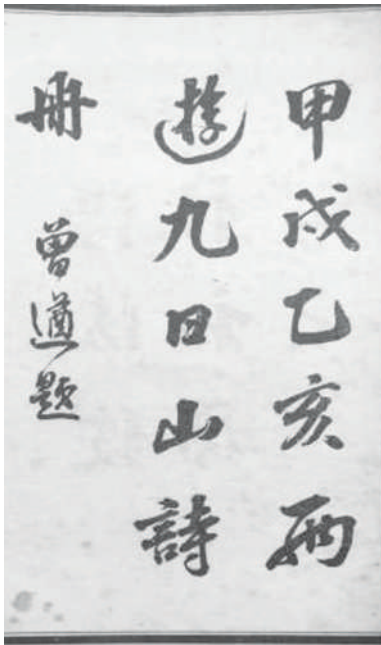 甲戌乙亥兩
遊九日山詩
冊
曾遒題